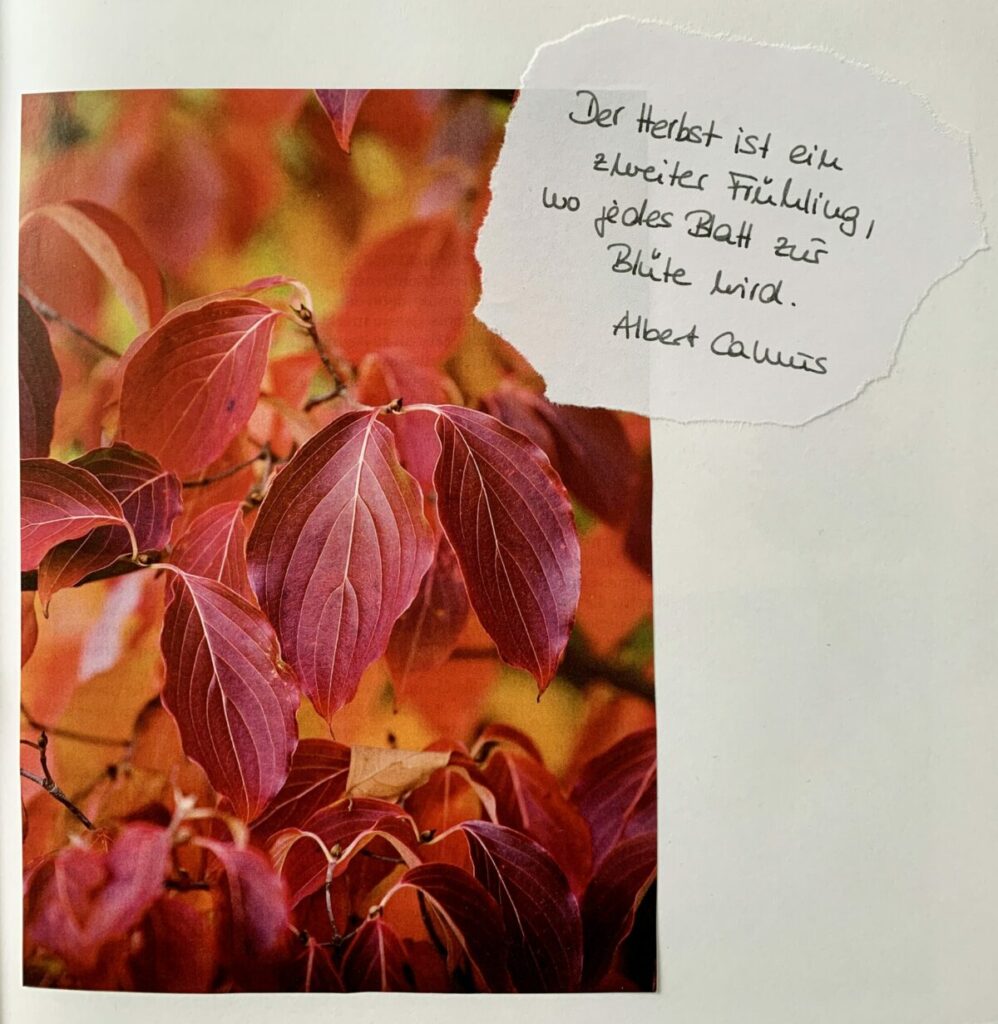 Der Herbst ist ein
zweiter Frühling,
wo jedes Blatt zur
Blüte wird.
Albert Camus